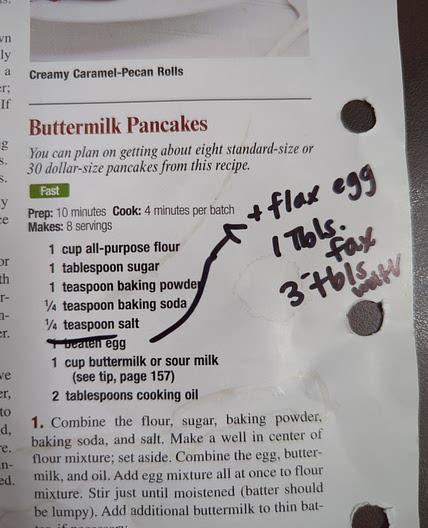 Creamy Caramel-Pecan Rolls
Buttermilk Pancakes
You can plan on getting about eight standard-size or
30 dollar-size pancakes from this recipe.
Fast
Prep: 10 minutes Cook: 4 minutes per batch
Makes: 8 servings
1 cup all-purpose flour
1 tablespoon sugar
1 teaspoon baking powder
¼ teaspoon baking soda
¼ teaspoon salt
1 beaten egg
1 cup buttermilk or sour milk
(see tip, page 157)
2 tablespoons cooking oil
+ flax egg
1 Tbls.
fax
3 tbls
watr
1. Combine the flour, sugar, baking powder,
baking soda, and salt. Make a well in center of
flour mixture; set aside. Combine the egg, butter-
milk, and oil. Add egg mixture all at once to flour
mixture. Stir just until moistened (batter should
be lumpy). Add additional buttermilk to thin bat-